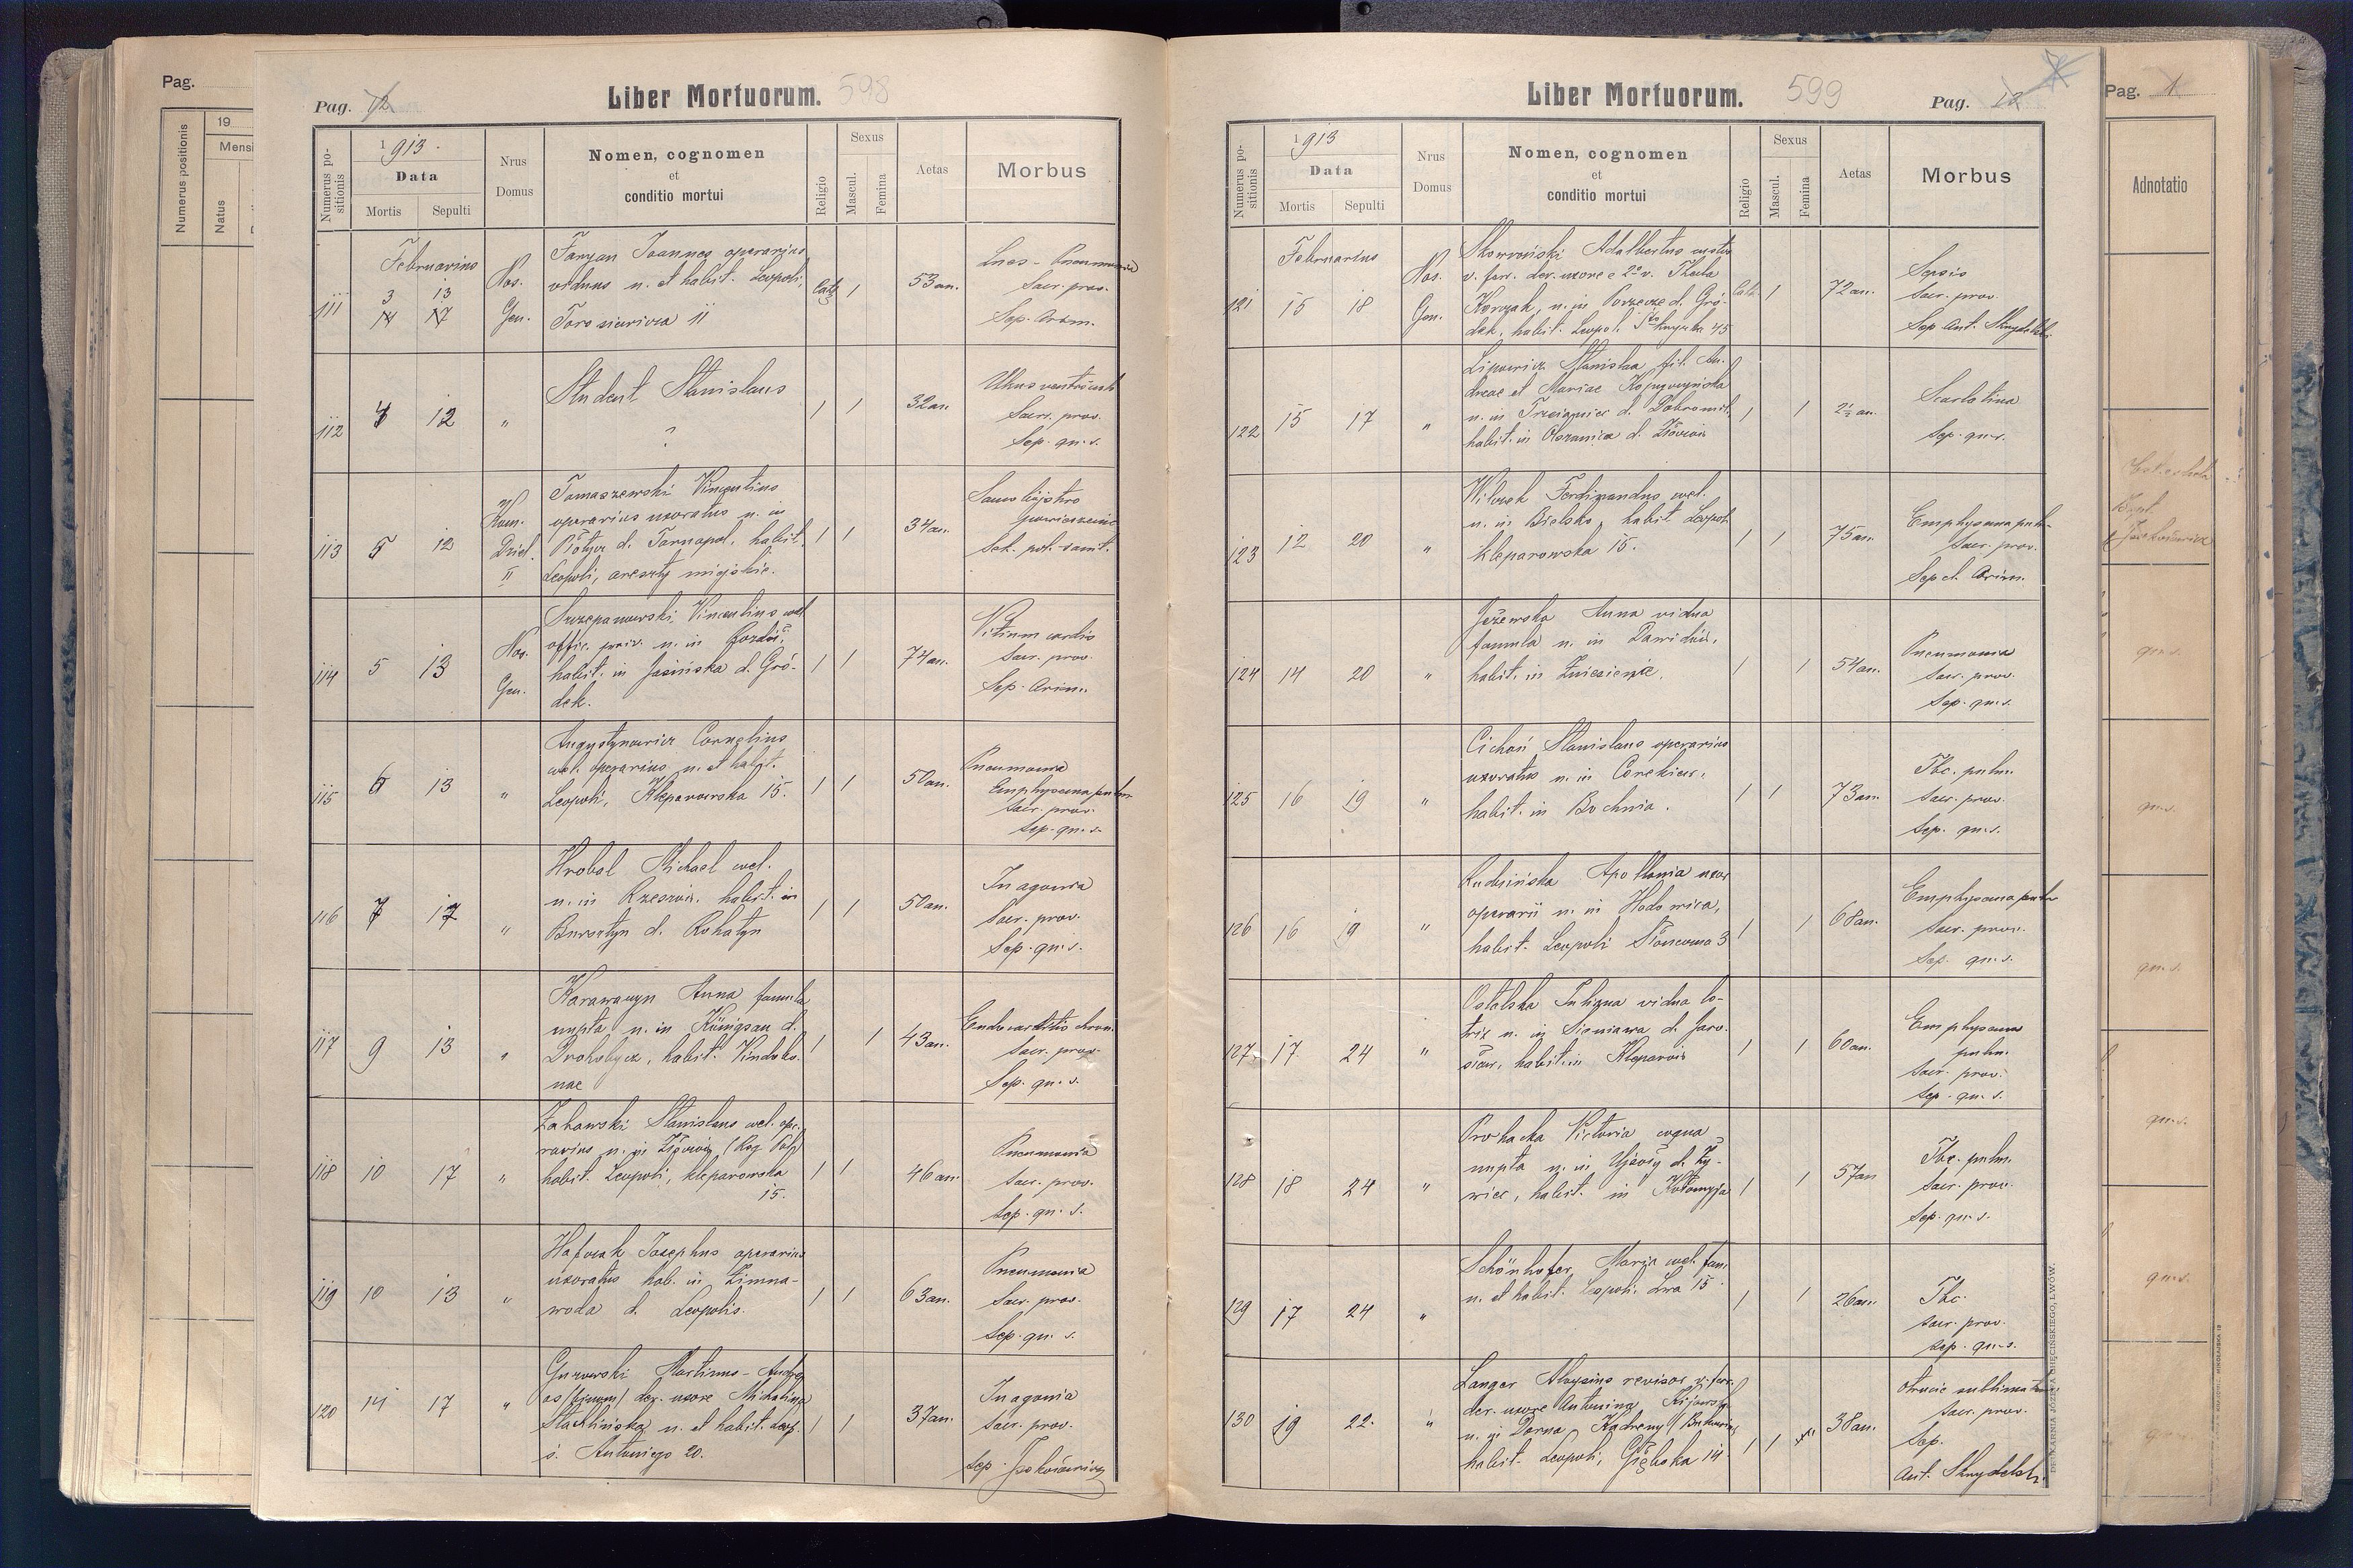 Pag.
19
Mensi
Numerus positionis
Natus
Pag. 12
Liber Mortuorum. 598
Numerus positionis
1913.
Data
Mortis
Sepulti
Nrus
Domus
Nomen, cognomen
et
conditio mortui
Religio
Sexus
Mascul.
Femina
Aetas
Morbus
Februarius
111
3 13
14 17
Nos.
Gen.
Joannes operarius
viduus n. et habit. Leopoli,
Torosiewicza 11
Cath
1
53 an.
Lues - Pneumonia
Sacr. prov.
Sep. Arim.
112
4
12
"
Student Stanislaus
?
1
1
32 an.
Ulcus ventriculi
Sacr. prov.
Sep. qu. s.
113
5
12
Kom.
Dziel.
II
Tomaszewski Vincentius
operarius uxoratus n. in
d. Tarnopol, habit.
Leopoli, areszty miejskie.
1
1
34 an.
Samobójstwo
powieszenie
114
5
13
Nos.
Gen.
Szczepanowski Vincentius cael.
offic. priv. n. in
habit. in Jasniska d. Gró-
dek.
1
1
74 an.
Vitium cordis
Sacr. prov.
Sep. Arim.
115
6
13
"
Augustynowicz Cornelius
cael. operarius n. et habit.
Leopoli, Kleparowska 15.
1
1
50 an.
Pneumonia
Emphysema pulm.
Sacr. prov.
Sep. qu. s.
116
7
17
"
Hrobel Michael cael.
n. in Rzeszów, habit. in
Bursztyn d. Rohatyn
1
1
50 an.
In agonia
Sacr. prov.
Sep. qu. s.
117
9
13
"
Anna famula
nupta n. in Königsau d.
Drohobycz, habit. Vindobo-
nae
1
1
43 an.
Endocarditis chron.
Sacr. prov.
Sep. qu. s.
118
10
17
"
Stanislaus cael. ope-
rarius n. in
habit. Leopoli, kleparowska
15.
1
1
46 an.
Pneumonia
Sacr. prov.
Sep. qu. s.
119
10
13
"
Josephus operarius
uxoratus hab. in Zimna-
woda d. Leopolis.
1
1
63 an.
Pneumonia
Sacr. prov.
Sep. qu. s.
120
14
17
"
Gurowski Martinus - Andre
as der. uxore Michalina
n. et habit. Leop.
ś. Antoniego 20.
1
1
37 an.
In agonia
Sacr. prov.
Sep.
Liber Mortuorum. 599
Pag. 12
Numerus positionis
1913
Data
Mortis
Sepulti
Nrus
Domus
Nomen, cognomen
et
conditio mortui
Religio
Sexus
Mascul.
Femina
Aetas
Morbus
Februarius
121
15
18
Nos.
Gen.
Skowroński Adalbertus custos
v. ferr. der. uxore e 2° v. Thecla
n. in d. Gró-
dek, habit. Leopol. 45
Cath
1
72 an.
Sepsis
Sacr. prov.
Sep. Ant. Skrydelski
122
15
17
"
Lipowicz Stanislaa fil. An-
dreae et Mariae
n. in d. Dobromil,
habit. in d.
1
1
2½ an.
Scarlatina
Sep. qu. s.
123
12
20
"
Wilczek Ferdinandus cael.
n. in Bielsko, habit Leopoli
kleparowska 15.
1
1
75 an.
Emphysema pulm.
Sacr. prov.
Sep. d. Arim.
124
14
20
"
Jeżewska Anna vidua
famula n. in Dawidów,
habit. in Zniesienie.
1
1
54 an.
Pneumonia
Sacr. prov.
Sep. qu. s.
125
16
19
"
Cichoń Stanislaus operarius
uxoratus n. in
habit. in Bochnia.
1
1
73 an.
Tbc. pulm.
Sacr. prov.
Sep. qu. s.
126
16
19
"
Rudzińska Apollonia uxor
operarii n. in Hodowica,
habit. Leopoli Słoneczna 3
1
1
68 an.
Emphysema pulm
Sacr. prov.
Sep. qu. s.
127
17
24
"
Ostalska vidua lo-
trix n. in Sieniawa d. Jaro-
sław, habit. in Kleparów
1
1
60 an.
Emphysema
pulm.
Sacr. prov.
Sep. qu. s.
128
18
24
"
Prohacka Victoria coqua
nupta n. in Ujsoły d. Ży-
wiec, habit. in Kołomyja
1
1
57 an
Tbc. pulm.
Sacr. prov.
Sep. qu. s.
129
17
24
"
Schönhofer Maria cael. fam.
n. et habit. Leopoli. Lwa 15
1
1
26 an.
Tbc.
Sacr. prov.
Sep. qu. s.
130
19
22.
"
Langer Aloysius revisor v. ferr.
der. uxore Antonina
n. in Dorna
habit. Leopoli, Głęboka 14.
1
1
38 an.
otrucie sublimatem
Sacr. prov.
Sep.
Ant. Skrydelski
Pag. 1
Adnotatio
qu. s.
qu. s.
qu. s.
qu. s.
qu. s.